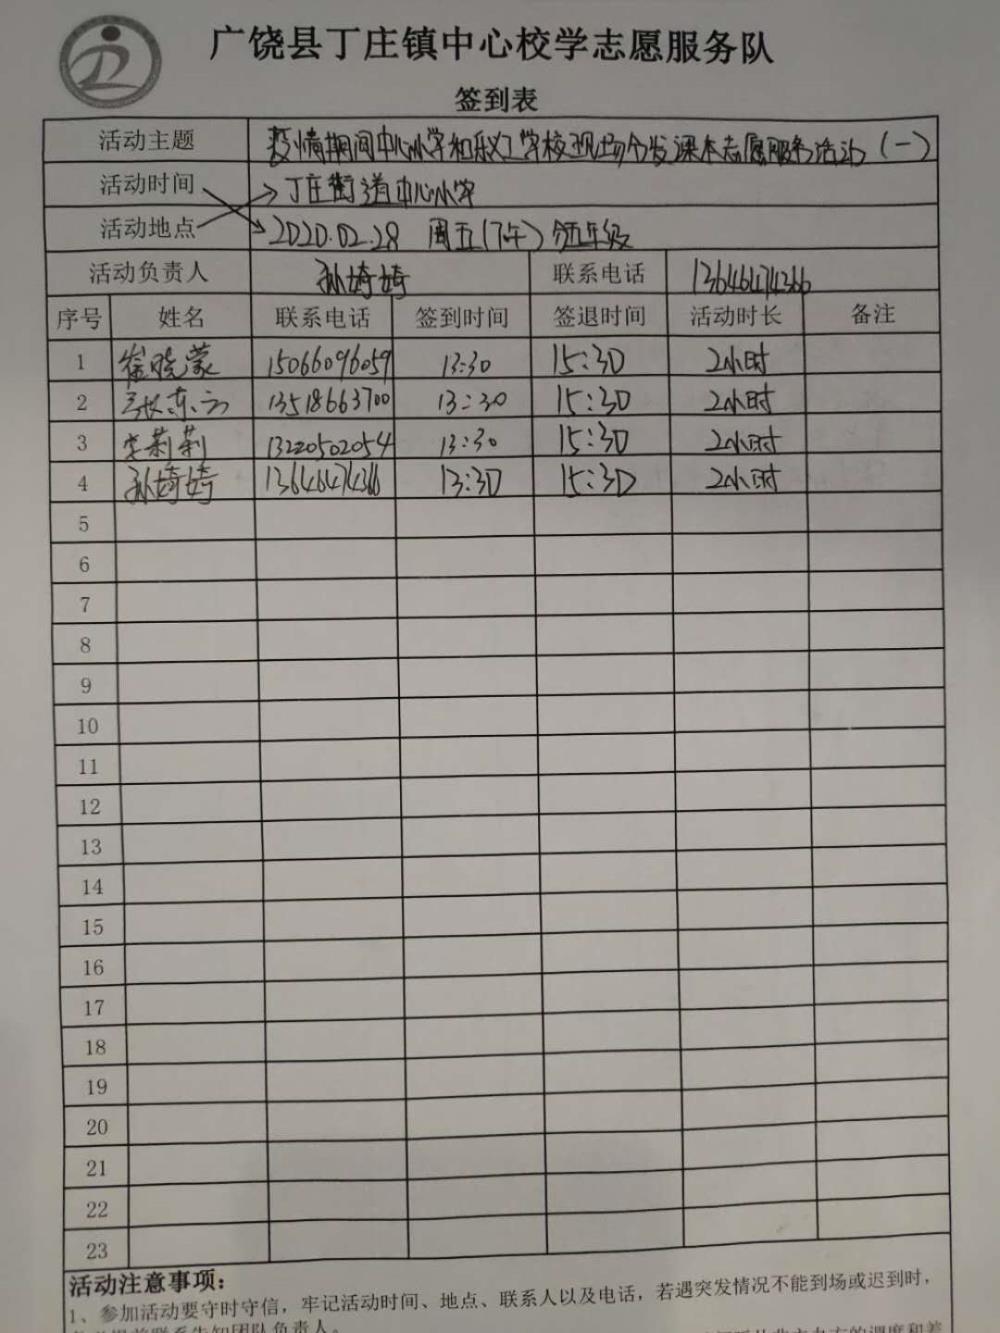 广饶县丁庄镇中心校学志愿服务队
签到表
活动主题 疫情期间中心小学和乐义学校现场分发课本志愿服务活动（一）
活动时间 丁庄街道中心小学
活动地点 2020.02.28 周五（下午）领五年级
活动负责人 孙婷婷 联系电话 13646474366
序号 姓名 联系电话 签到时间 签退时间 活动时长 备注
1 崔晓蒙 15066096059 13:30 15:30 2小时
2 张东方 13518663700 13:30 15:30 2小时
3 李莉莉 13220502054 13:30 15:30 2小时
4 孙婷婷 13646474366 13:30 15:30 2小时
5
6
7
8
9
10
11
12
13
14
15
16
17
18
19
20
21
22
23
活动注意事项：
1、参加活动要守时守信，牢记活动时间、地点、联系人以及电话，若遇突发情况不能到场或迟到时，
提前联系告知团队负责人。